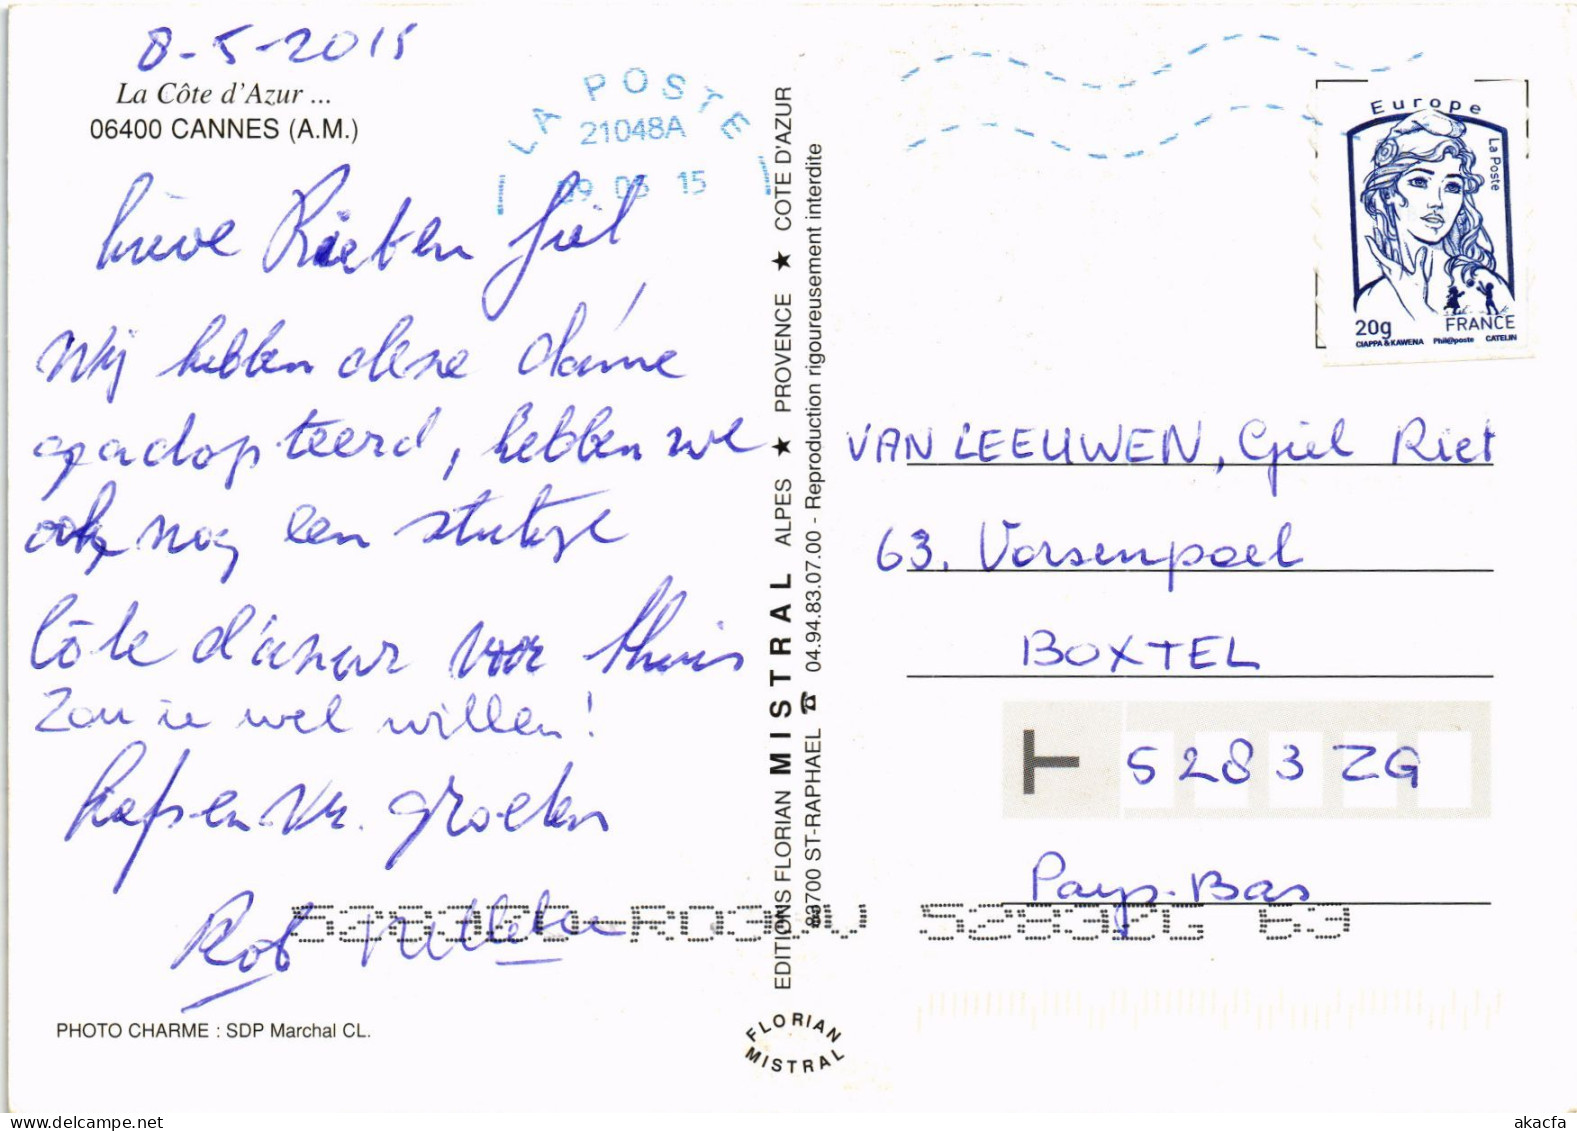 8-5-2015
La Côte d'Azur ...
06400 CANNES (A.M.)
lieve Rieten Giel
Wij hebben deze dame
geadopteerd, hebben we
ook nog een stukje
Côte d'azur voor thuis
Zou je wel willen!
Liefs en vr. groeten
Rob
PHOTO CHARME : SDP Marchal CL.
LA POSTE
21048A
09 05 15
EDITIONS FLORIAN MISTRAL ALPES ★ PROVENCE ★ COTE D'AZUR
83700 ST-RAPHAEL ☎ 04.94.83.07.00 - Reproduction rigoureusement interdite
FLORIAN
MISTRAL
Europe
La Poste
20g FRANCE
CIAPPA & KAWENA Phil@poste CATELIN
VAN LEEUWEN, Giel Riet
63. Vorsenpoel
BOXTEL
5283ZG
Pays-Bas
5283ZG 63
delcampe.net
akacfa